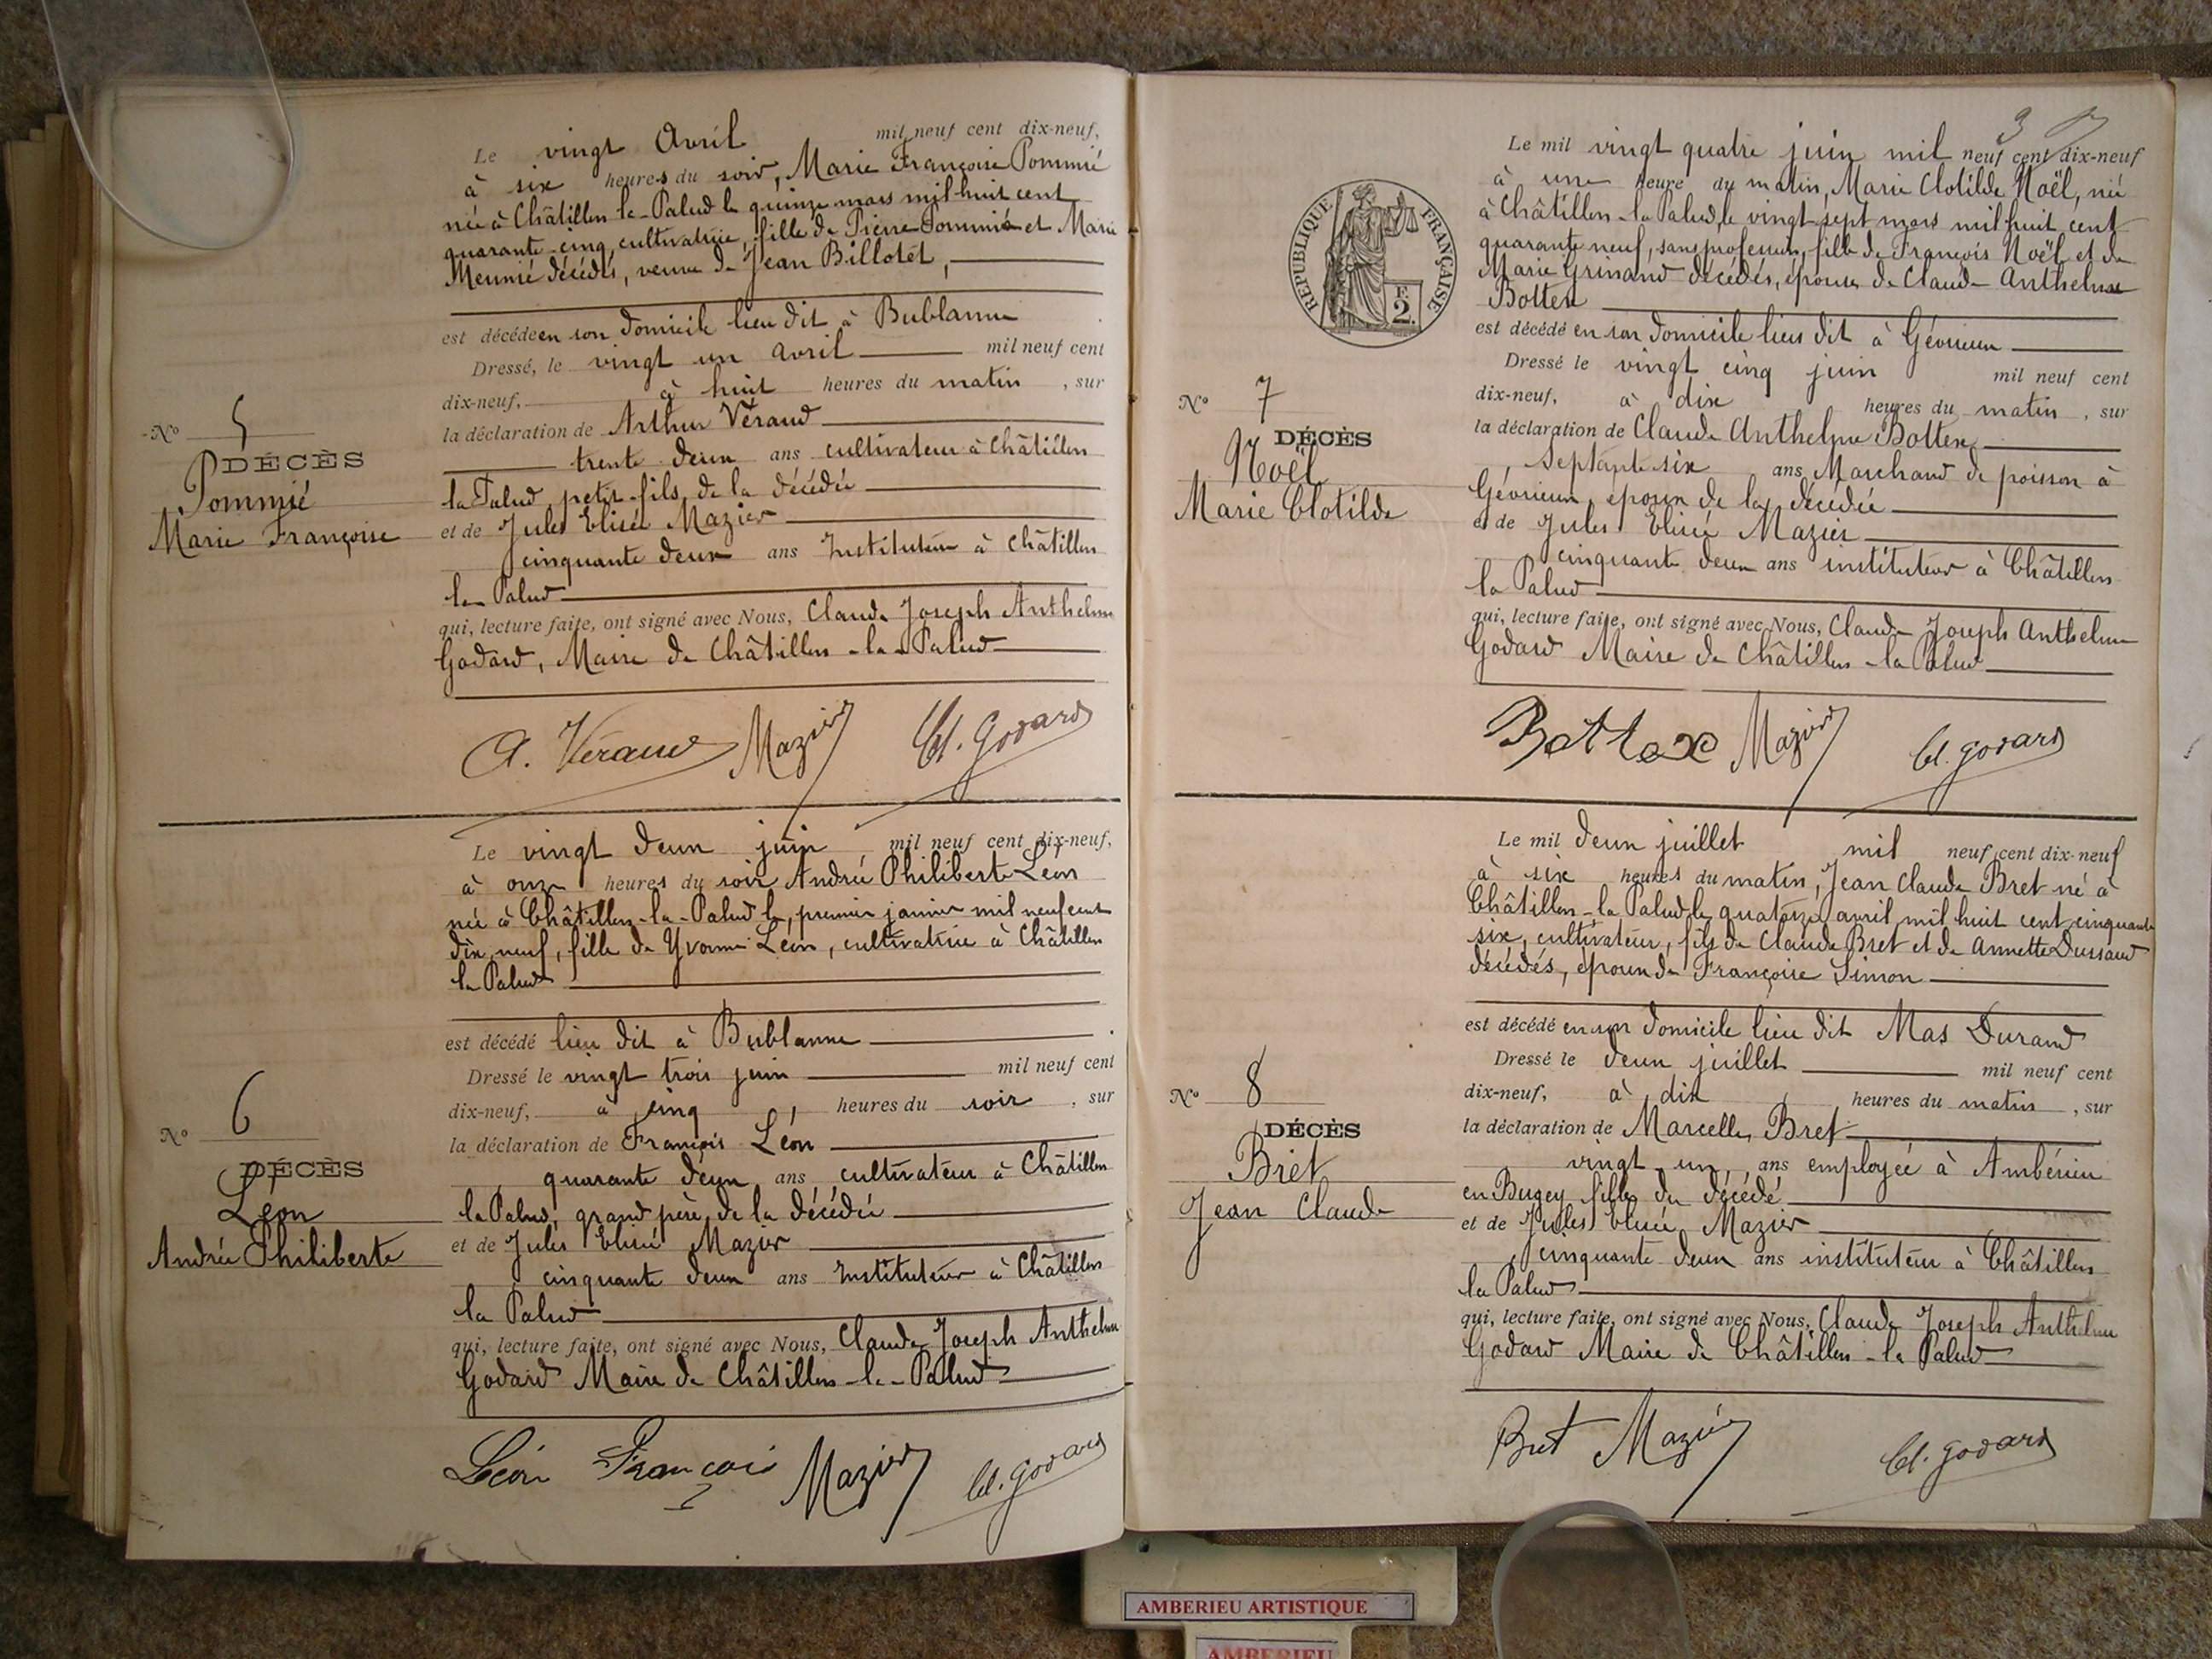 Le vingt Avril mil neuf cent dix-neuf,
à six heures du soir, Marie Françoise Pommié
née à Châtillon la-Palud le quinze mars mil huit cent
quarante cinq, cultivatrice, fille de Pierre Pommié et Marie
Meunié décédés, veuve de Jean Billotet,
est décédé en son domicile lieu dit à Bublanne
Dressé, le vingt un avril mil neuf cent
dix-neuf, à huit heures du matin, sur
la déclaration de Arthur Véraud
trente deux ans cultivateur à Châtillon
la Palud, petit-fils de la décédée
et de Jules Elisée Mazier
cinquante deux ans Instituteur à Châtillon
la Palud
qui, lecture faite, ont signé avec Nous, Claude Joseph Anthelme
Godard, Maire de Châtillon-la-Palud
A. Véraud Mazier Cl. Godard
No 5
DÉCÈS
Pommié
Marie Françoise
Le vingt deux juin mil neuf cent dix-neuf,
à onze heures du soir Andrée Philiberte Léon
née à Châtillon-la-Palud le premier janvier mil neuf cent
dix neuf, fille de Yvonne Léon, cultivatrice à Châtillon
la Palud
est décédé lieu dit à Bublanne
Dressé le vingt trois juin mil neuf cent
dix-neuf, à cinq heures du soir, sur
la déclaration de François Léon
quarante deux ans cultivateur à Châtillon
la Palud, grand père de la décédée
et de Jules Elisée Mazier
cinquante deux ans Instituteur à Châtillon
la Palud
qui, lecture faite, ont signé avec Nous, Claude Joseph Anthelme
Godard Maire de Châtillon-la-Palud
Léon François Mazier Cl. Godard
No 6
DÉCÈS
Léon
Andrée Philiberte
3
RÉPUBLIQUE FRANÇAISE
F
2
Le mil vingt quatre juin mil neuf cent dix-neuf
à une heure du matin, Marie Clotilde Noël, née
à Châtillon-la-Palud, le vingt-sept mars mil huit cent
quarante neuf, sans profession, fille de François Noël et de
Marie Grinand décédés, épouse de Claude Anthelme
Bottex
est décédé en son domicile lieu dit à Gévrieux
Dressé le vingt cinq juin mil neuf cent
dix-neuf, à dix heures du matin, sur
la déclaration de Claude Anthelme Bottex
, septante six ans, Marchand de poisson à
Gévrieux, époux de la décédée
et de Jules Elisée Mazier
cinquante deux ans instituteur à Châtillon
la Palud
qui, lecture faite, ont signé avec Nous, Claude Joseph Anthelme
Godard Maire de Châtillon-la Palud
Bottex Mazier Cl. Godard
No 7
DÉCÈS
Noël
Marie Clotilde
Le mil deux juillet mil neuf cent dix-neuf
à six heures du matin, Jean Claude Bret né à
Châtillon-la Palud le quatorze avril mil huit cent cinquante
six, cultivateur, fils de Claude Bret et de Annette Dussaud
décédés, époux de Françoise Simon
est décédé en son domicile lieu dit Mas Durand
Dressé le deux juillet mil neuf cent
dix-neuf, à dix heures du matin, sur
la déclaration de Marcelle Bret
vingt un, ans employée à Ambérieu
en Bugey fille du décédé
et de Jules Elisée Mazier
cinquante deux ans instituteur à Châtillon
la Palud
qui, lecture faite, ont signé avec Nous, Claude Joseph Anthelme
Godard Maire de Châtillon-la Palud
Bret Mazier Cl. Godard
No 8
DÉCÈS
Bret
Jean Claude
AMBERIEU ARTISTIQUE
AMBERIEU